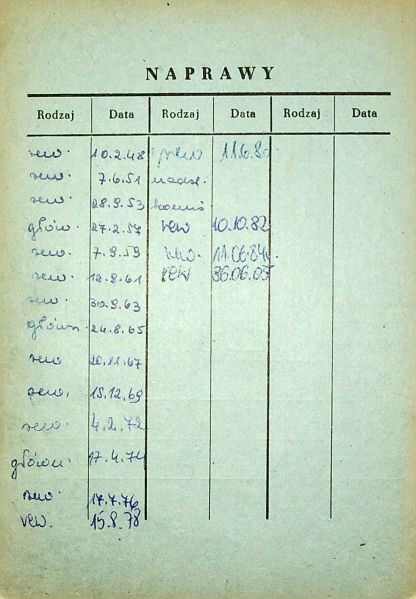 NAPRAWY
Rodzaj Data Rodzaj Data Rodzaj Data
rew. 10.2.48 rew 11.6.80
rew. 7.6.51 nadzw.
rew. 28.9.53 komis
główn. 27.2.57 rew 10.10.82
rew. 7.9.59 rew. 11.06.84
rew. 12.9.61 rew
rew. 30.9.63
główn. 24.8.65
rew 20.11.67
rew. 15.12.69
rew. 4.2.72
główn. 17.4.74
rew. 17.7.76
rew. 15.8.78